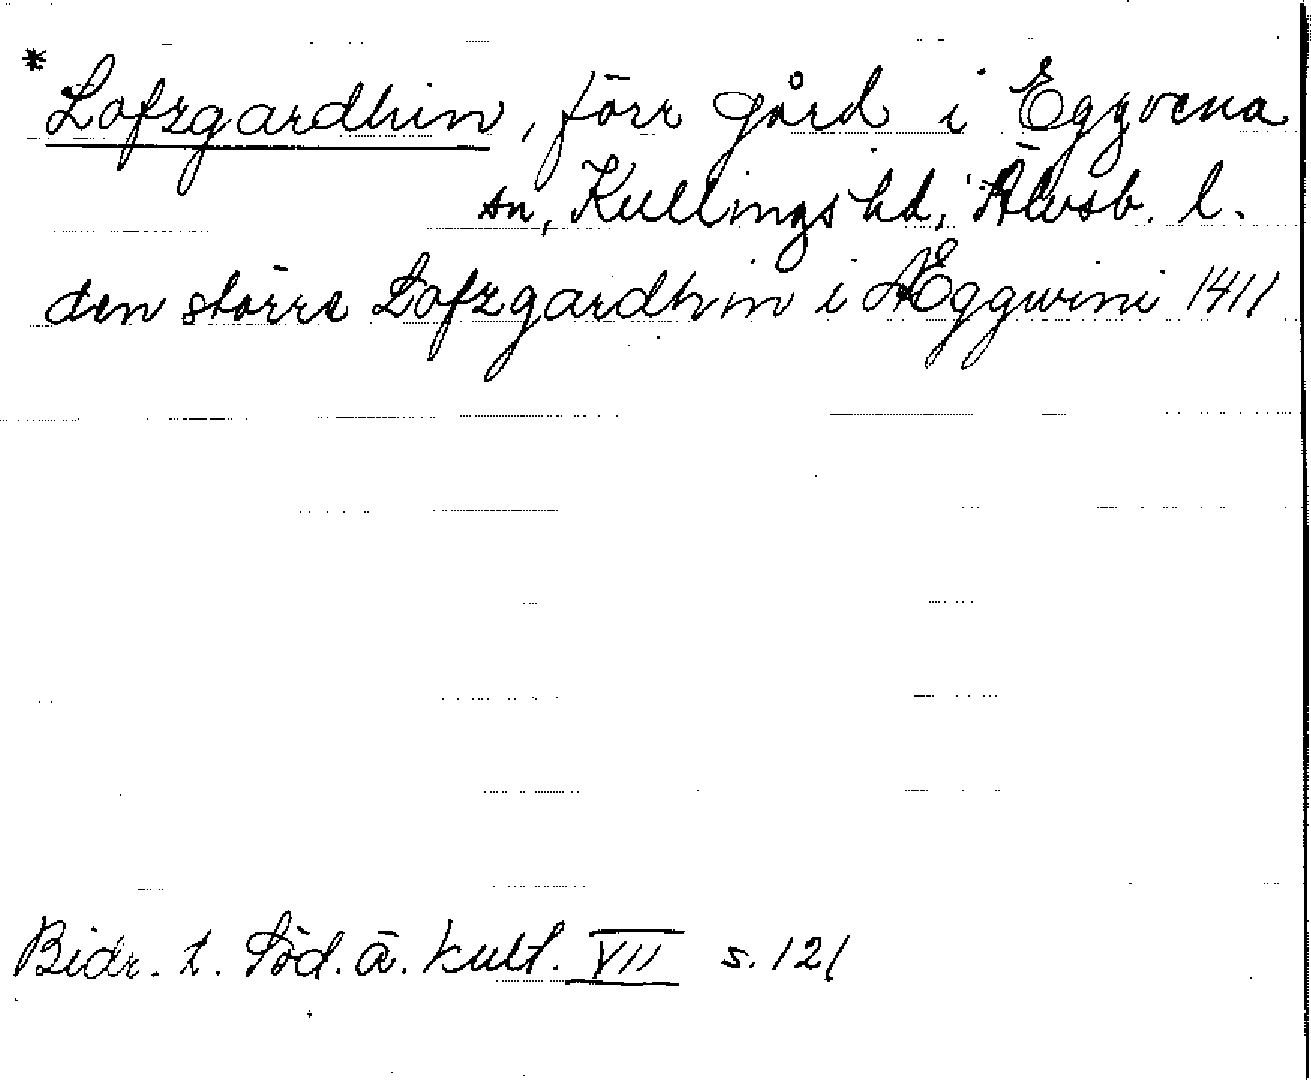 * Lofzgardhin, förr gård i Eggvena
sn, Kullings hd, Älvsb. l.
den större Lofzgardhin i Æggwini 1411
Bidr. t. Söd. ä. kult. VII s. 121